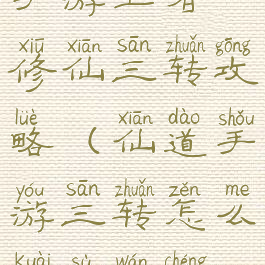 xiū xiān sān zhuǎn gōng
修仙三转攻
lüè xiān dào shǒu
略（仙道手
yóu sān zhuǎn zěn me
游三转怎么
kuài sù wán chéng